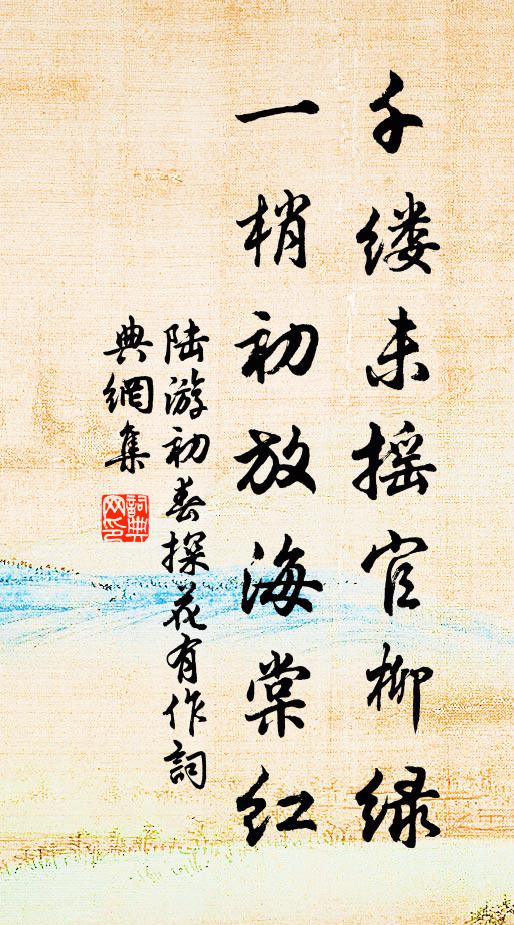 千缕未摇官柳绿
一梢初放海棠红
陆游初春探花有作詞
典網集
詞典網印